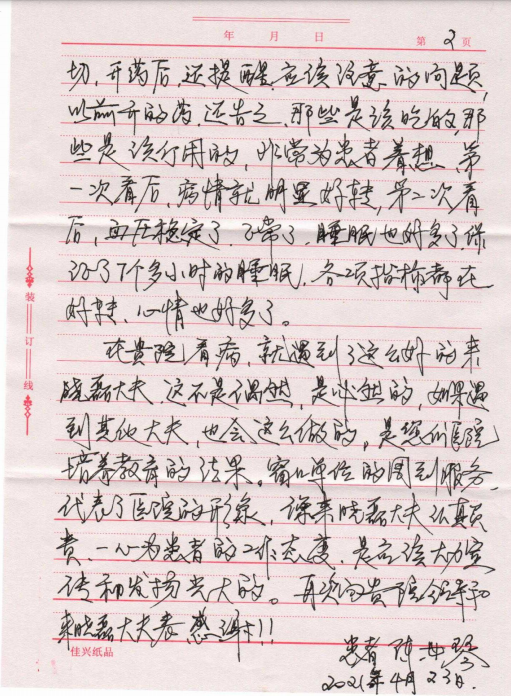 年 月 日 第 2 页
切,开药后,还提醒应该注意的问题,
以前开的药,还告之,那些是该吃的,那
些是该停用的,非常为患者着想,第
一次看后,病情就明显好转,第二次看
后,血压稳定了,正常了,睡眠也好多了,保
证了7个多小时的睡眠,各项指标都在
好转,心情也好多了。
在贵院看病,就遇到了这么好的来
晓磊大夫,这不是偶然,是必然的,如果遇
到其他大夫,也会这么做的,是你们医院
培养教育的结果。窗口单位的周到服务,
代表了医院的形象,像来晓磊大夫认真负
责,一心为患者的工作态度,是应该大力宣
传和发扬光大的。再次向贵院领导和
来晓磊大夫表感谢!!
患者 陈
2021年4月23日.
装订线
佳兴纸品